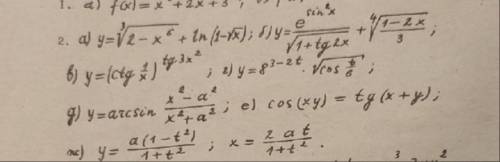 1. а) f(x) = x³ + 2x + 3
2. а) y = ∛(2 - x⁵) + ln(1-√x); б) y = e^(sin²x) / √(1+tg2x) + ⁴√((1-2x)/3);
в) y = (ctg 1/x)^(tg3x²); г) y = 8^(3-2t) · √(cos t/6);
д) y = arcsin (x²-a²)/(x²+a²); е) cos(xy) = tg(x+y);
ж) y = a(1-t²)/(1+t²); x = 2at/(1+t²).